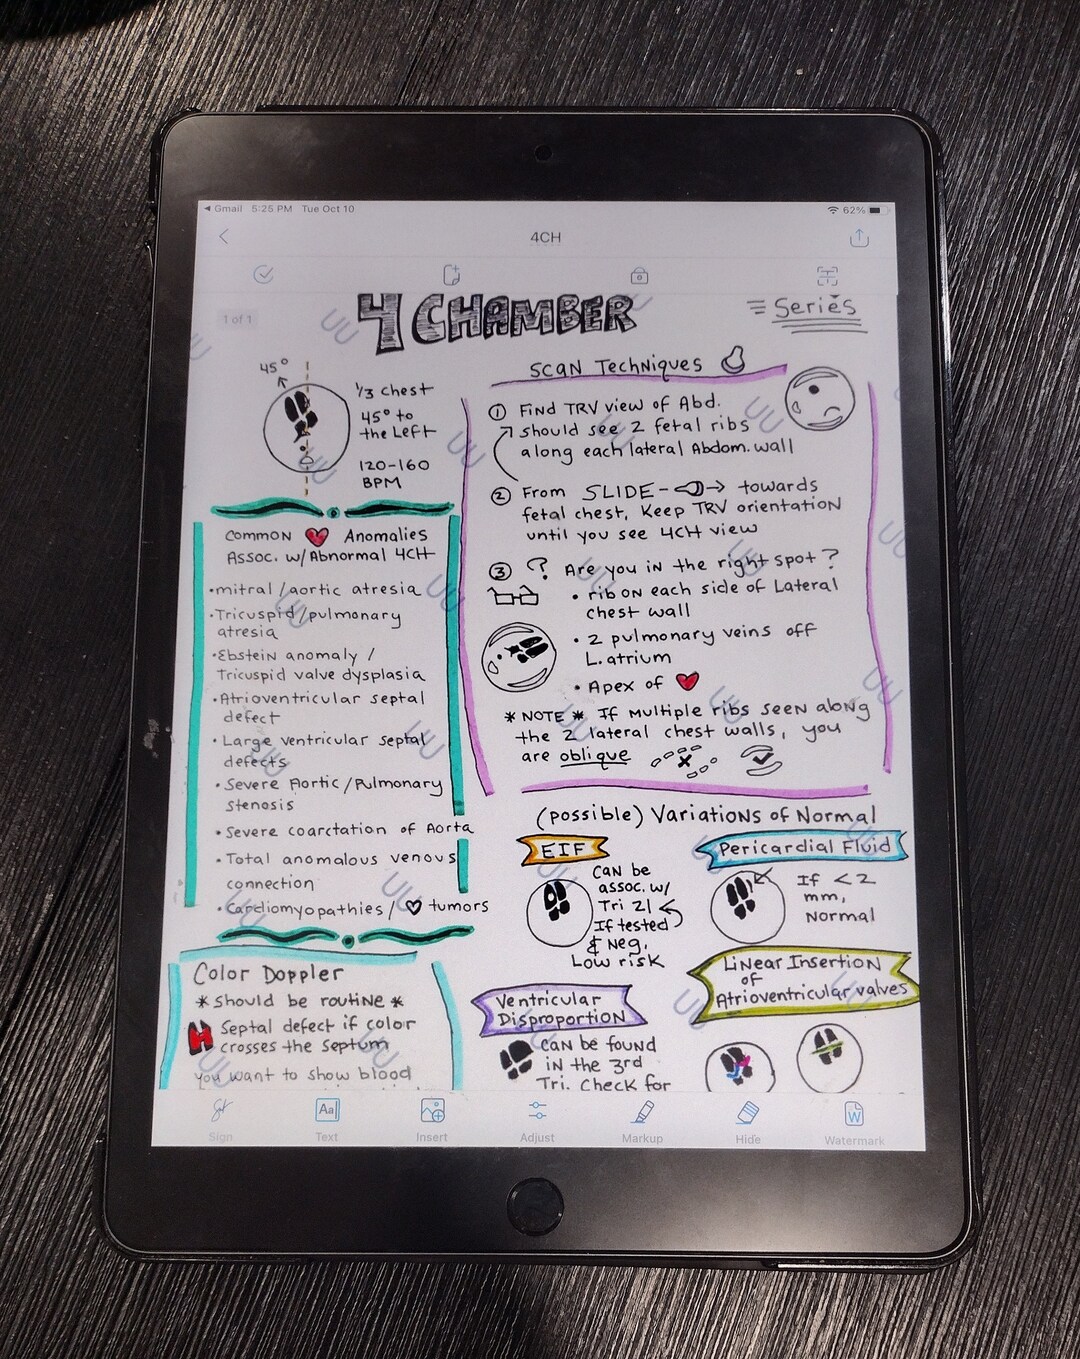 Gmail 5:25 PM Tue Oct 10
62%
4CH
1 of 1
4 CHAMBER
Series
45°
1/3 chest
45° to
the Left
120-160
BPM
Common ❤ Anomalies
Assoc. w/Abnormal 4CH
•mitral/aortic atresia
•Tricuspid/pulmonary
atresia
•Ebstein anomaly /
Tricuspid valve dysplasia
•Atrioventricular septal
defect
•Large ventricular septal
defects
•Severe Aortic/Pulmonary
stenosis
•Severe coarctation of Aorta
•Total anomalous venous
connection
•Cardiomyopathies/ ♡ tumors
Color Doppler
*should be routine*
Septal defect if color
crosses the septum
you want to show blood
Scan Techniques
① Find TRV view of Abd.
should see 2 fetal ribs
along each lateral Abdom. wall
② From SLIDE-→ towards
fetal chest, Keep TRV orientation
until you see 4CH view
③ ? Are you in the right spot?
• rib on each side of Lateral
chest wall
• 2 pulmonary veins off
L. atrium
• Apex of ❤
*NOTE* If Multiple ribs seen along
the 2 lateral chest walls, you
are oblique
(possible) Variations of Normal
EIF
Can be
assoc. w/
Tri 21
If tested
& neg.
Low risk
Pericardial Fluid
If <2
mm,
Normal
Ventricular
Disproportion
Can be found
in the 3rd
Tri. Check for
Linear Insertion
of
Atrioventricular valves
Sign
Text
Insert
Adjust
Markup
Hide
Watermark
UU